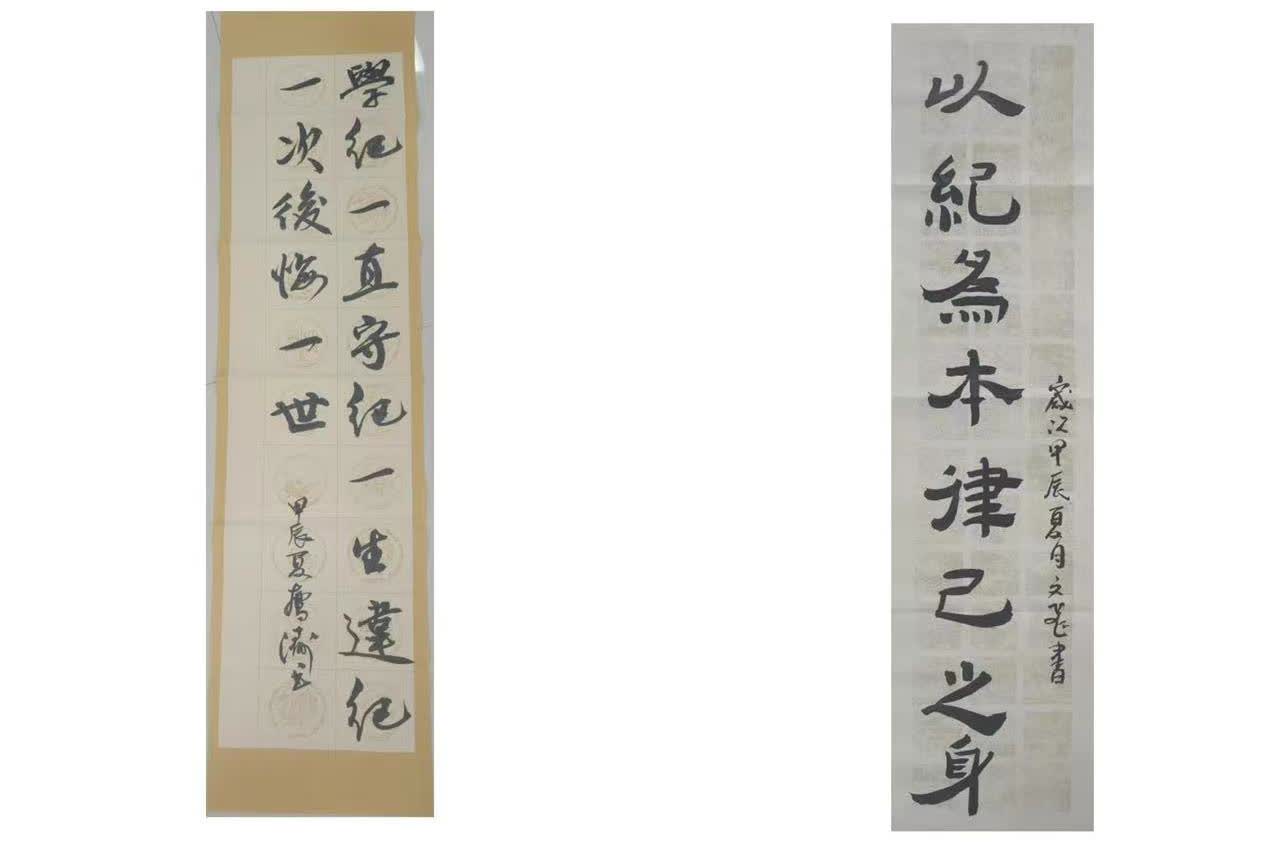 學紀一直守紀一生違紀
一次後悔一世
甲辰夏
以紀為本律己之身
歲次甲辰夏月文

書